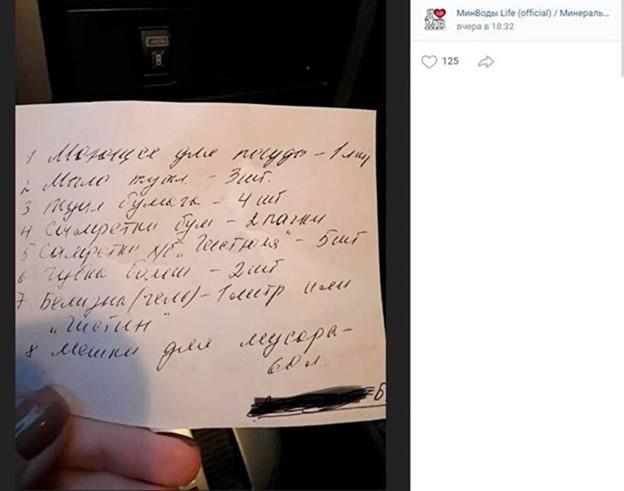 МинВоды Life (official) / Минераль...
вчера в 18:32
125
1 Моющее для посуды – 1 лит
2 Мыло туал. – 3 шт.
3 туал бумага – 4 шт
4 Салфетки бум – 2 пачки
5 Салфетки х/б „Чистюля" – 5 шт
6 Губка больш – 2 шт
7 Белизна (гель) – 1 литр или
„Чистин"
8 Мешки для мусора –
60 л.
Б